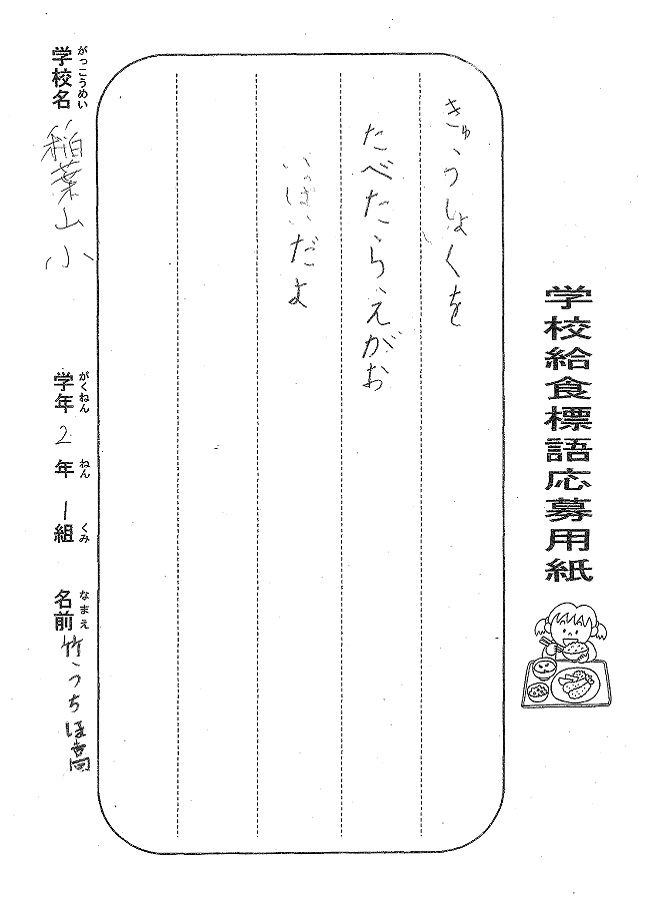 学校給食標語応募用紙
きゅうしょくを
たべたらえがお
いっぱいだよ
がっこうめい
学校名 稲葉山小
がくねん ねん くみ
学年 2年 1組
なまえ
名前 竹うちほ高